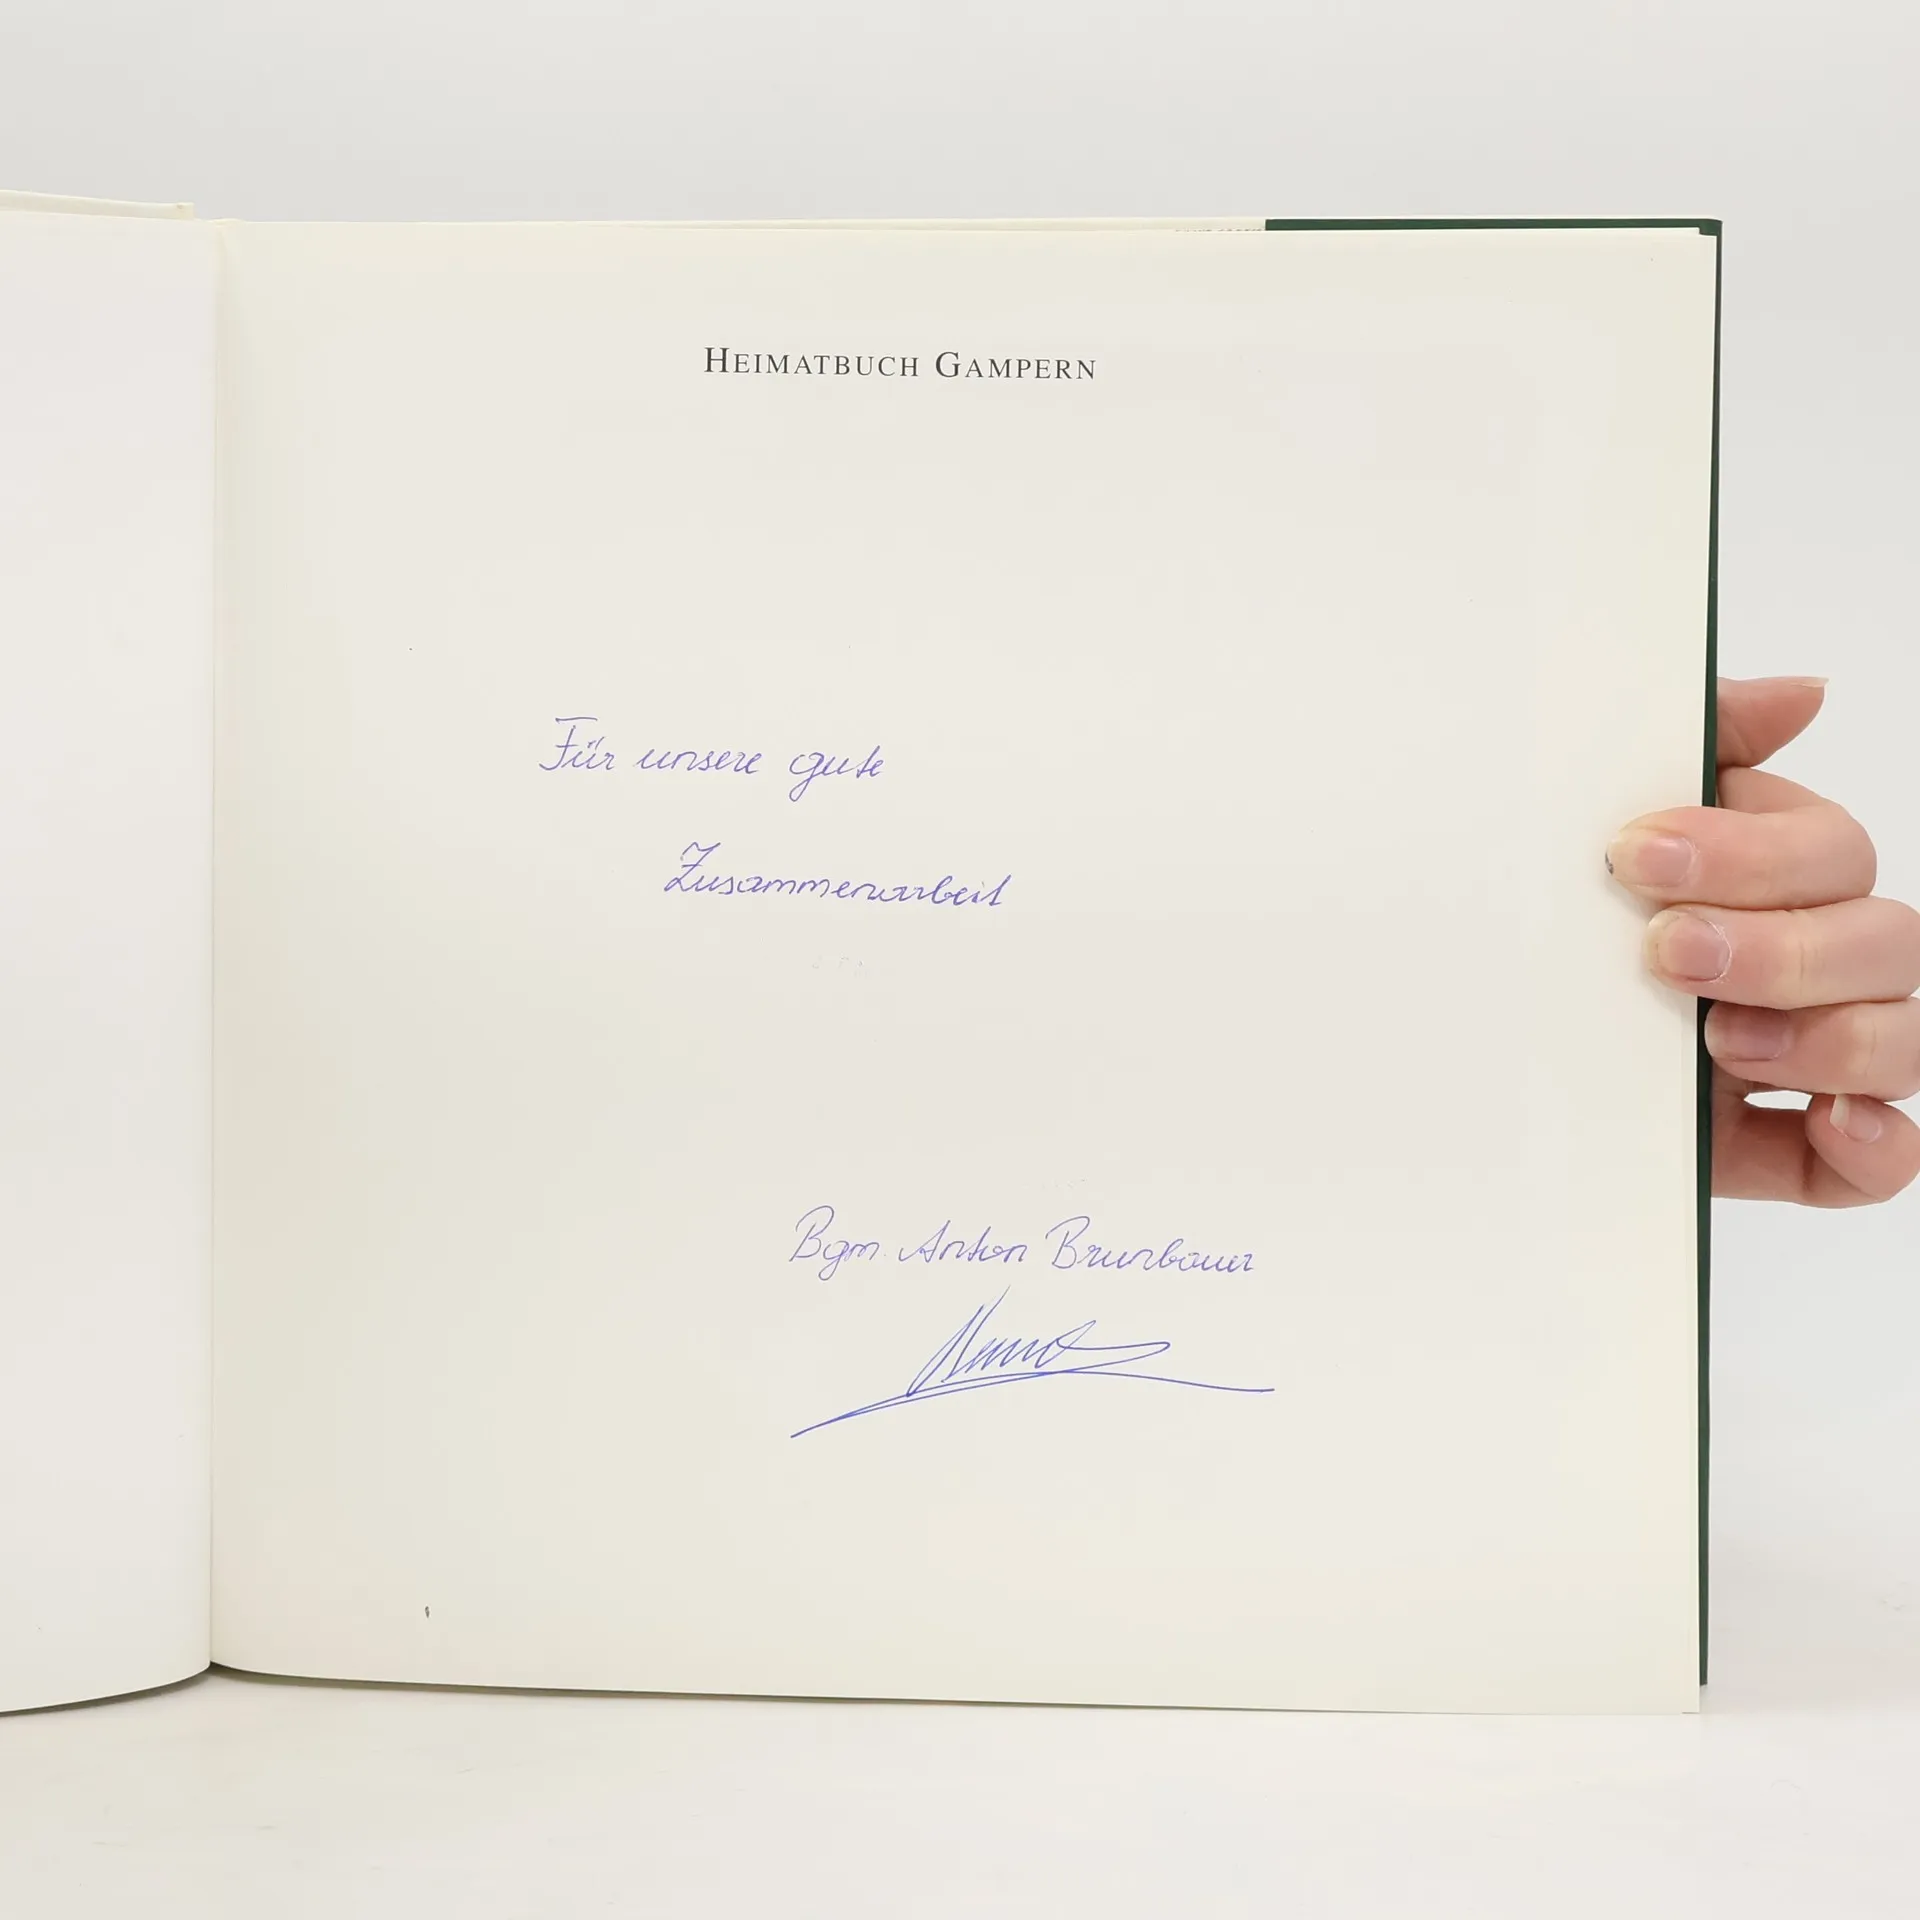 HEIMATBUCH GAMPERN
Für unsere gute
Zusammenarbeit
Bgm. Anton Brunbauer